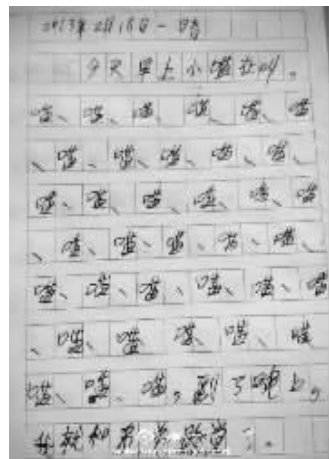 2013年2月18日一晴
今天早上小喵在叫。
喵、喵、喵、喵、喵、喵
、喵、喵、喵、喵、喵
喵、喵、喵、喵、喵、喵
、喵、喵、喵、喵、喵、
喵、喵、喵、喵、喵、喵
、喵、喵、喵、喵、喵
喵、喵、喵。到了晚上。
我就和了。